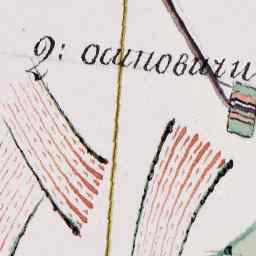 Q: осиповичи